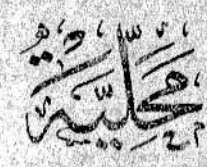 محليّة